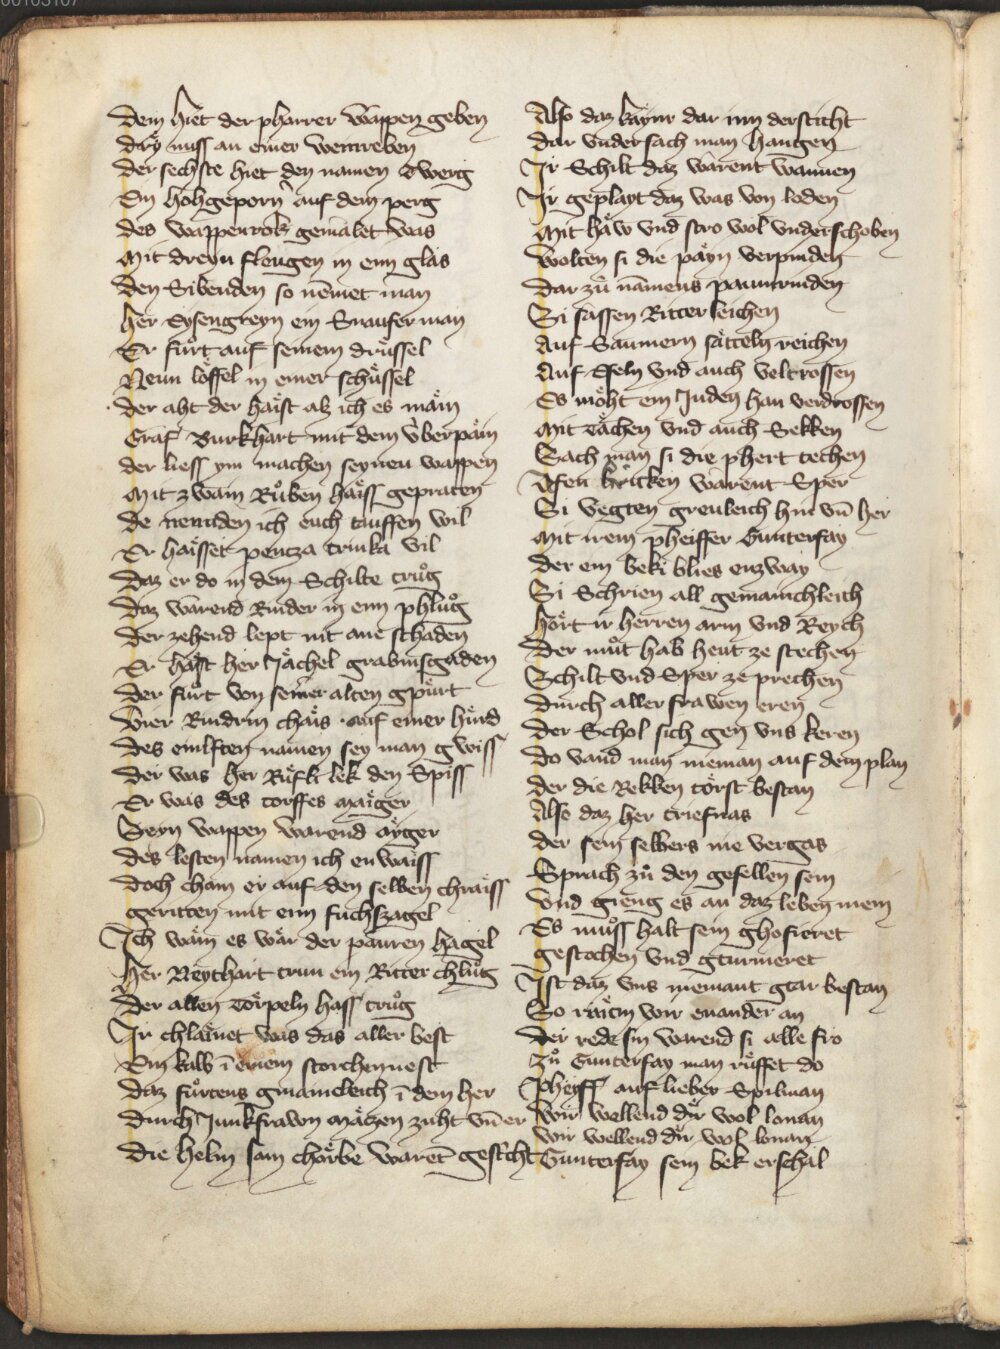 Dem hiet der pharrer wappen geben
Drÿ nuss an einer weinreben
Der sechste hiet den namen Twerg
Ein hohgeporn auf dem perg
Des wappenrok gemalet was
Mit dreyn fleugen in eim glas
Den Sibenden so nemet man
Her Eysengreyn ein Snaufer man
Er fuͦrt auf seinem drüssel
Neun löffel in einer schüssel
Der aht der haist als ich es main
Graf Burkhart mit dem vberpain
der liess ym machen seynen wappen
Mit zwain Ruͦben haiss gepraten
De neunden ich euch tauffen wil
Er haisset pencza trinka vil
Daz er do in dem Schilte truͦg
Daz warend Rinder in eim phluͦg
Der zehend lept nit ane schaden
Er haist her Jächel grabinsgaden
Der fuͦrt von seiner alten gpürt
Vier Rindrin chäs auf einer hürd
Des einlften namen sey man gwiss
Der was her Rüfli lek den Spiss
Er was des torffes maiger
Seyn wappen warend ayger
Des lesten namen ich en waiss
Doch cham er auf den selben chraiss
geritten mit eim fuchszagel
Ich wän es wär der pauren hagel
Her Neythart trun ein Ritter chluͦg
Der allen törpeln hass truͦg
Ir chlainet was das aller best
Ein kalb ī einem storchennest
Daz fuͦrtens gmaincleich ī dem her
Durch Junkfrawn Mätzen zuht vn̄ er
Die helm sam chörbe waren gesticht
Also daz kayner dar inn dersticht
Dar vnder sach man hangen
Ir Schilt daz warent wannen
Ir geplayt daz was von loden
Mit häw vnd stro wol vnderschoben
Wolten si die payn verpinden
Dar zuͦ namens paumrinden
Si sassen Ritterleichen
Auf Saumern sätteln reichen
Auf Eseln vnd auch veltrossen
Es möht ein Juden han verdrossen
Mit tächen vnd auch Sekken
Sach man si die phert techen
Ofen krucken warent Sper
Si vegten greuleich hin vn̄ her
Mit irem pheiffer Gunterfay
der ein beki blies enzway
Si Schrien all gemainchleich
Hört ir herren arm vnd Reych
Der muͦt hab heut ze stechen
Schilt vnd Sper ze prechen
Durch aller frawen eren
Der Schol sich gen vns keren
Do vand man nieman auf dem plan
der die Rekken törst bestan
Also daz her triefnas
Der sein selbers nie vergas
Sprach zuͦ den gesellen sein
Vnd gieng es an daz leben mein
Es muͦss halt sein ghofieret
gestochen vnd gturnieret
Ist daz vns niemant gtar bestan
So raitin wir enander an
Der rede sin warend si alle fro
Zuͦ Gunterfay man rüffet do
Pheyff auf lieber Spilman
Wir wellend dir wol lonan
Wir wellend dir wol lonan
Gunterfay sein bek erschal